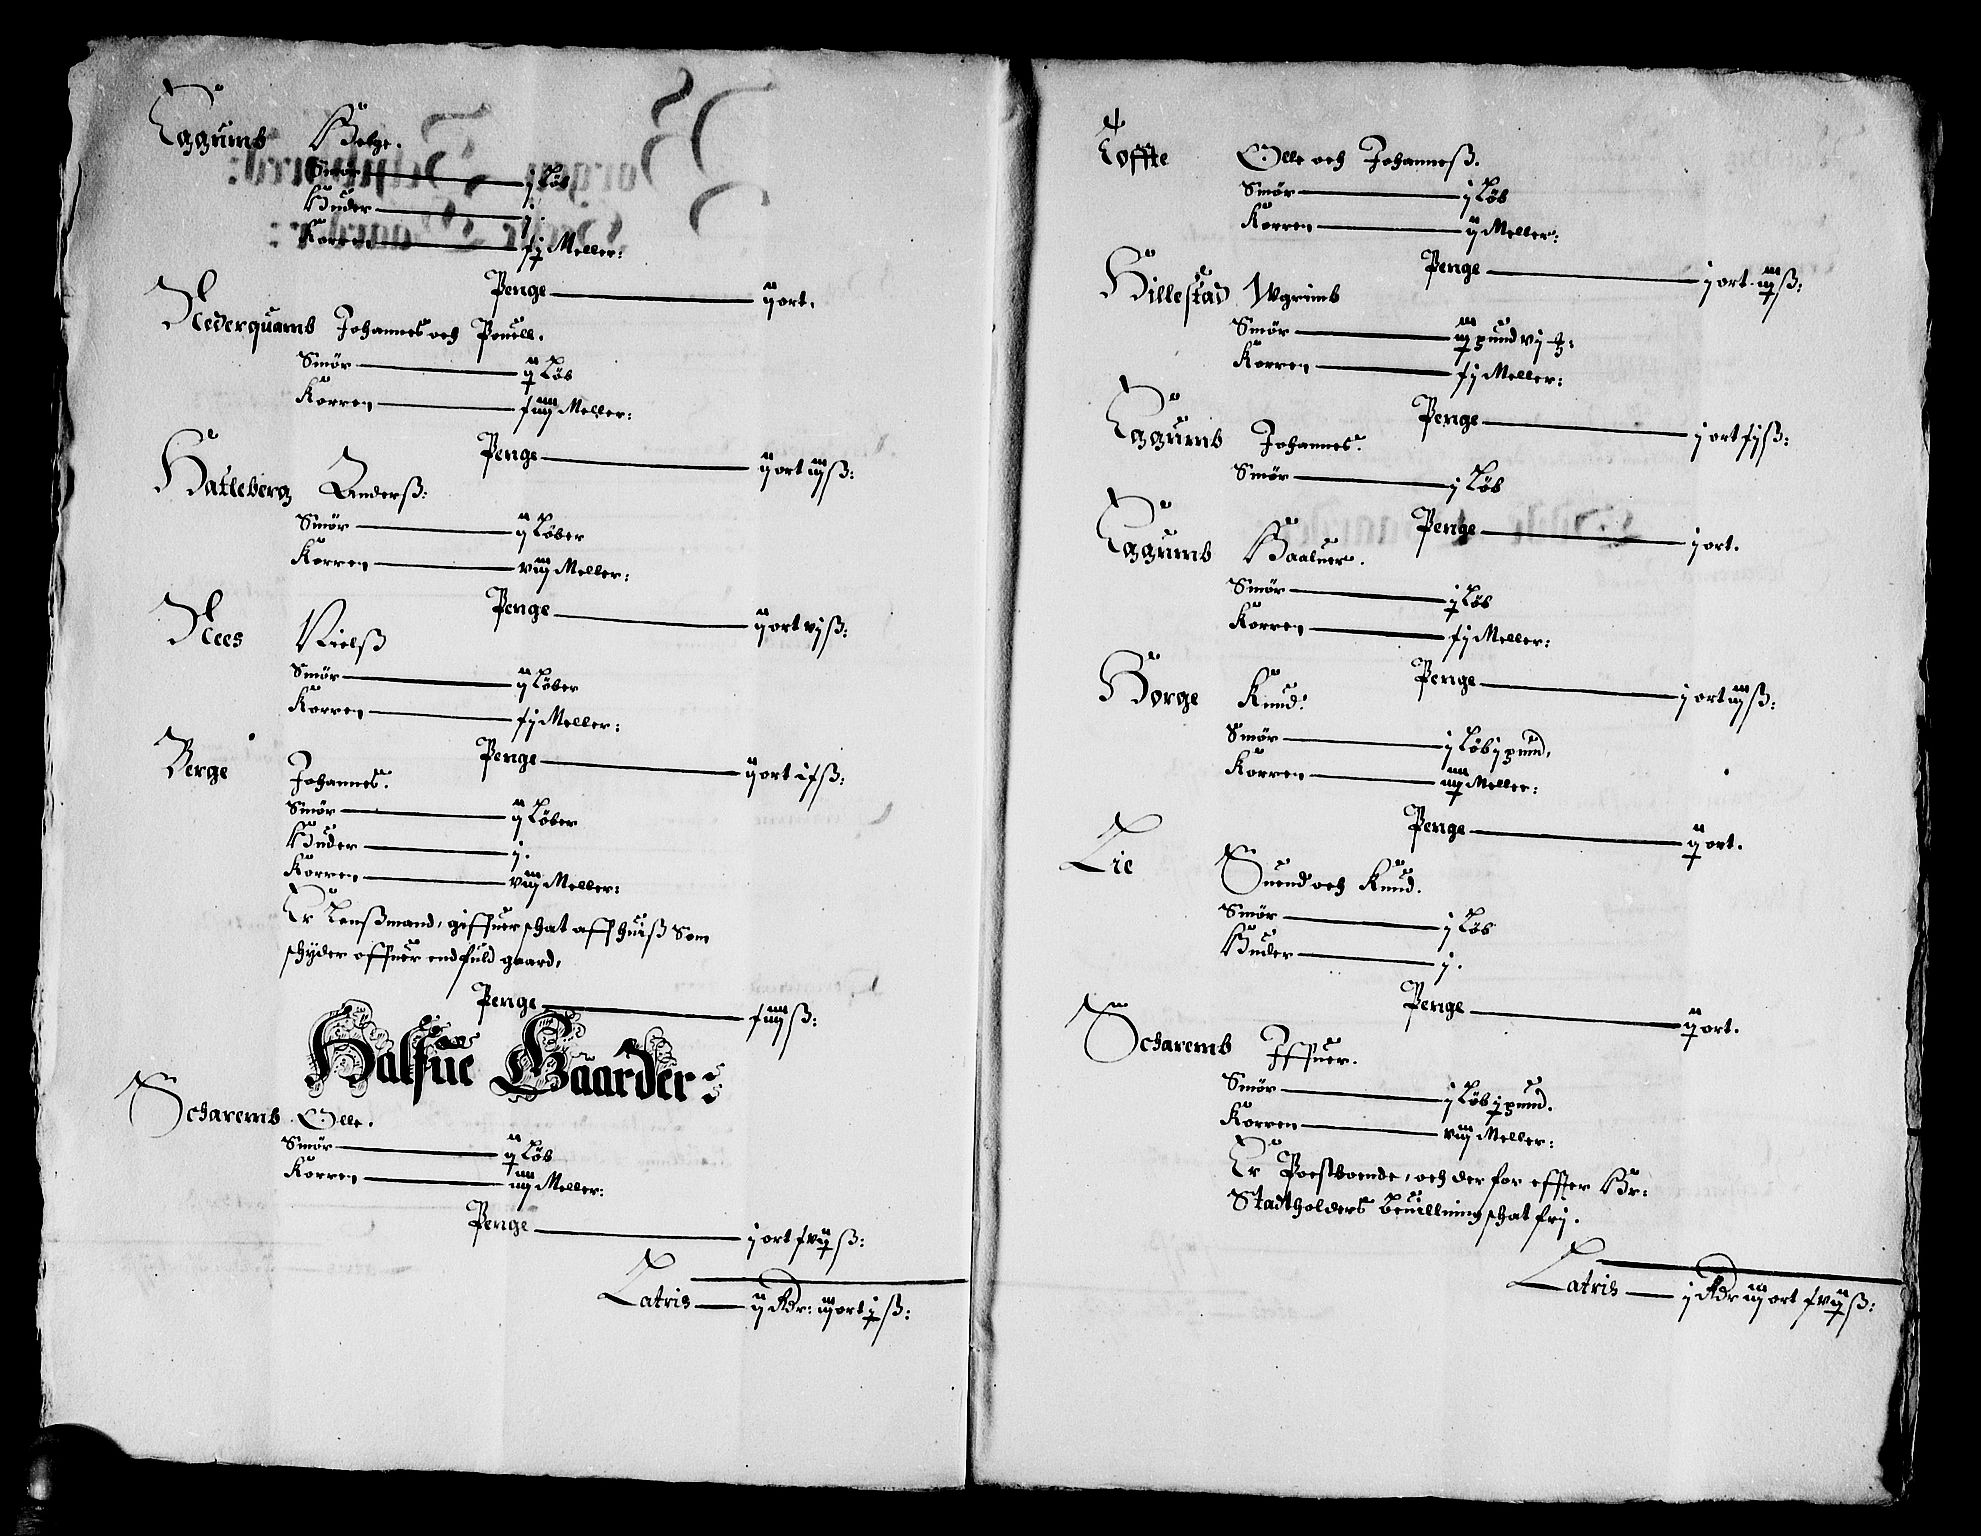 Eggumb Helge.
Smør — j Løb
Huder — j.
Korren — fij Meller:
Penge — ij ort.
Nederquamb Johannes och Pouell.
Smør — ij Løb
Korren — fiiij Meller:
Penge — ij ort iij ß:
Hatleberg Anderß:
Smør — ij Løber
Korren — viij Meller:
Penge — ij ort vj ß:
Nees Nielß
Smør — ij Løber
Korren — fj Meller:
Penge — ij ort ifß:
Berge Johannes.
Smør — ij Løber
Huder — j.
Korren — viij Meller:
Er Lenßmand, giffuer schat aff huiß Som
schyder offuer end fuld gaard,
Penge — fiiij ß:
Halfue Gaarder:
Scharemb Olle.
Smør — ij Løb
Korren — iiij Meller:
Penge — j ort fvij ß:
Latris — ij Rdr: iij ort j ß:
Toffte Olle och Johanneß.
Smør — j Løb
Korren — ij Meller:
Penge — j ort iij ß:
Hillestad Wgrimb
Smør — iij pund vj
Korren — fj Meller:
Penge — j ort fj ß:
Eggumb Johannes.
Smør — j Løb
Penge — j ort.
Eggumb Haaluer.
Smør — j Løb
Korren — fj Meller:
Penge — j ort iiij ß:
Horge Knud.
Smør — j Løb j pund,
Korren — iiij Meller:
Penge — ij ort.
Lie Suend och Knud.
Smør — j Løb
Huder — j.
Penge — ij ort.
Scharemb Iffuer.
Smør — j Løb j pund.
Korren — viij Meller:
Er Postboende, och der for effter Hr:
Stadtholders beuillning schat frj.
Latris — j Rdr iij ort fvij ß: